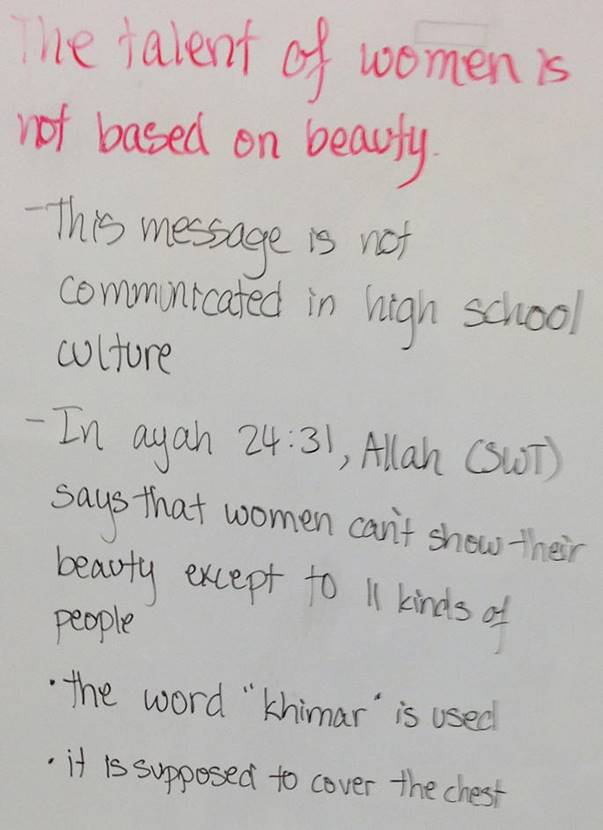 The talent of women is
not based on beauty.
- This message is not
communicated in high school
culture
- In ayah 24:31, Allah (SWT)
says that women can't show their
beauty except to 11 kinds of
people
• the word "khimar" is used
• it is supposed to cover the chest